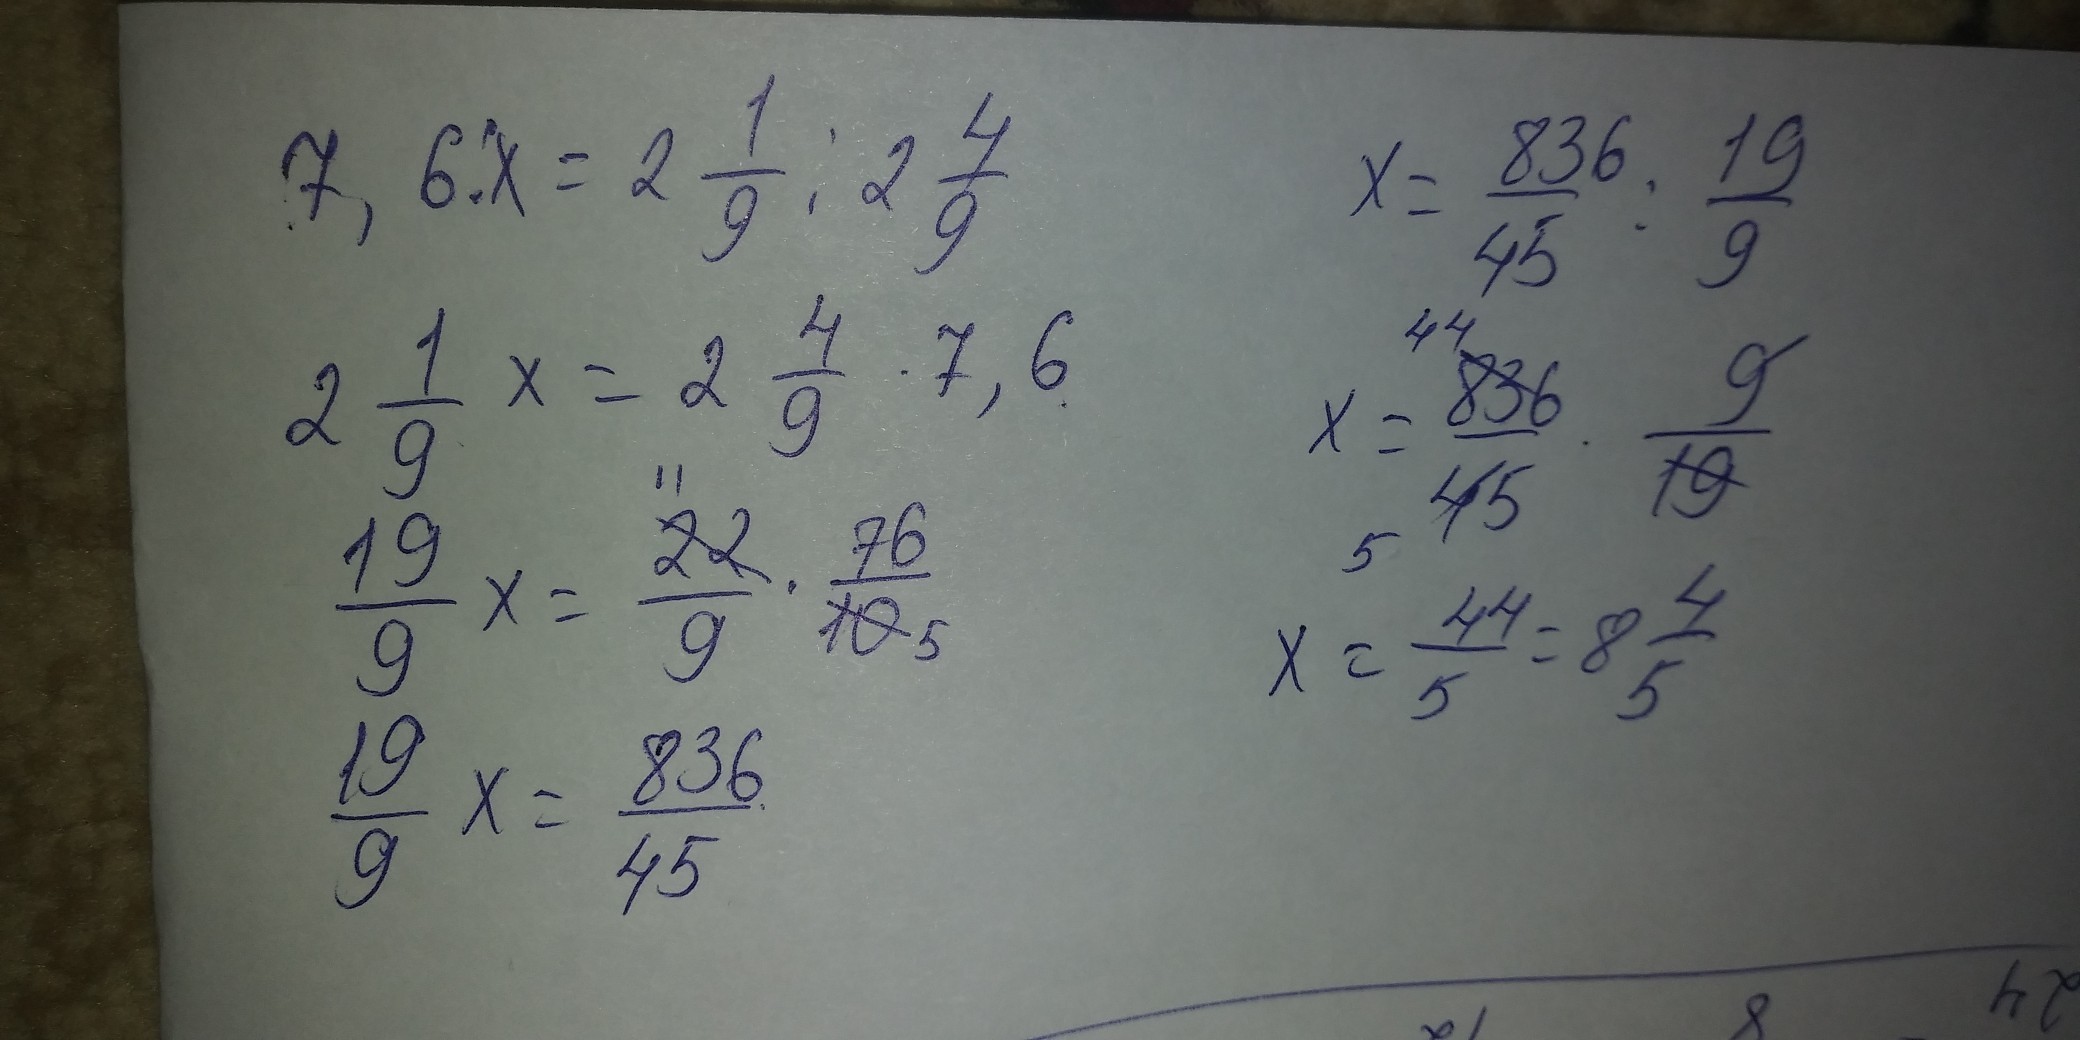 7,6:x = 2 1/9 : 2 4/9
2 1/9 x = 2 4/9 · 7,6
11
19/9 x = 22/9 · 76/10 5
19/9 x = 836/45
x = 836/45 : 19/9
44
x = 836/45 · 9/19
5
x = 44/5 = 8 4/5
24
8